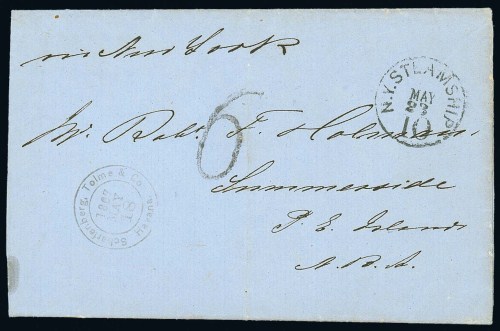 via New York
N.Y. STEAMSHIP
MAY
23
10
6
Mr. Robt. F. Holman
Summerside
P. E. Island
N.B.A.
Tolme & Co.
Havana.
1867
MAY
18